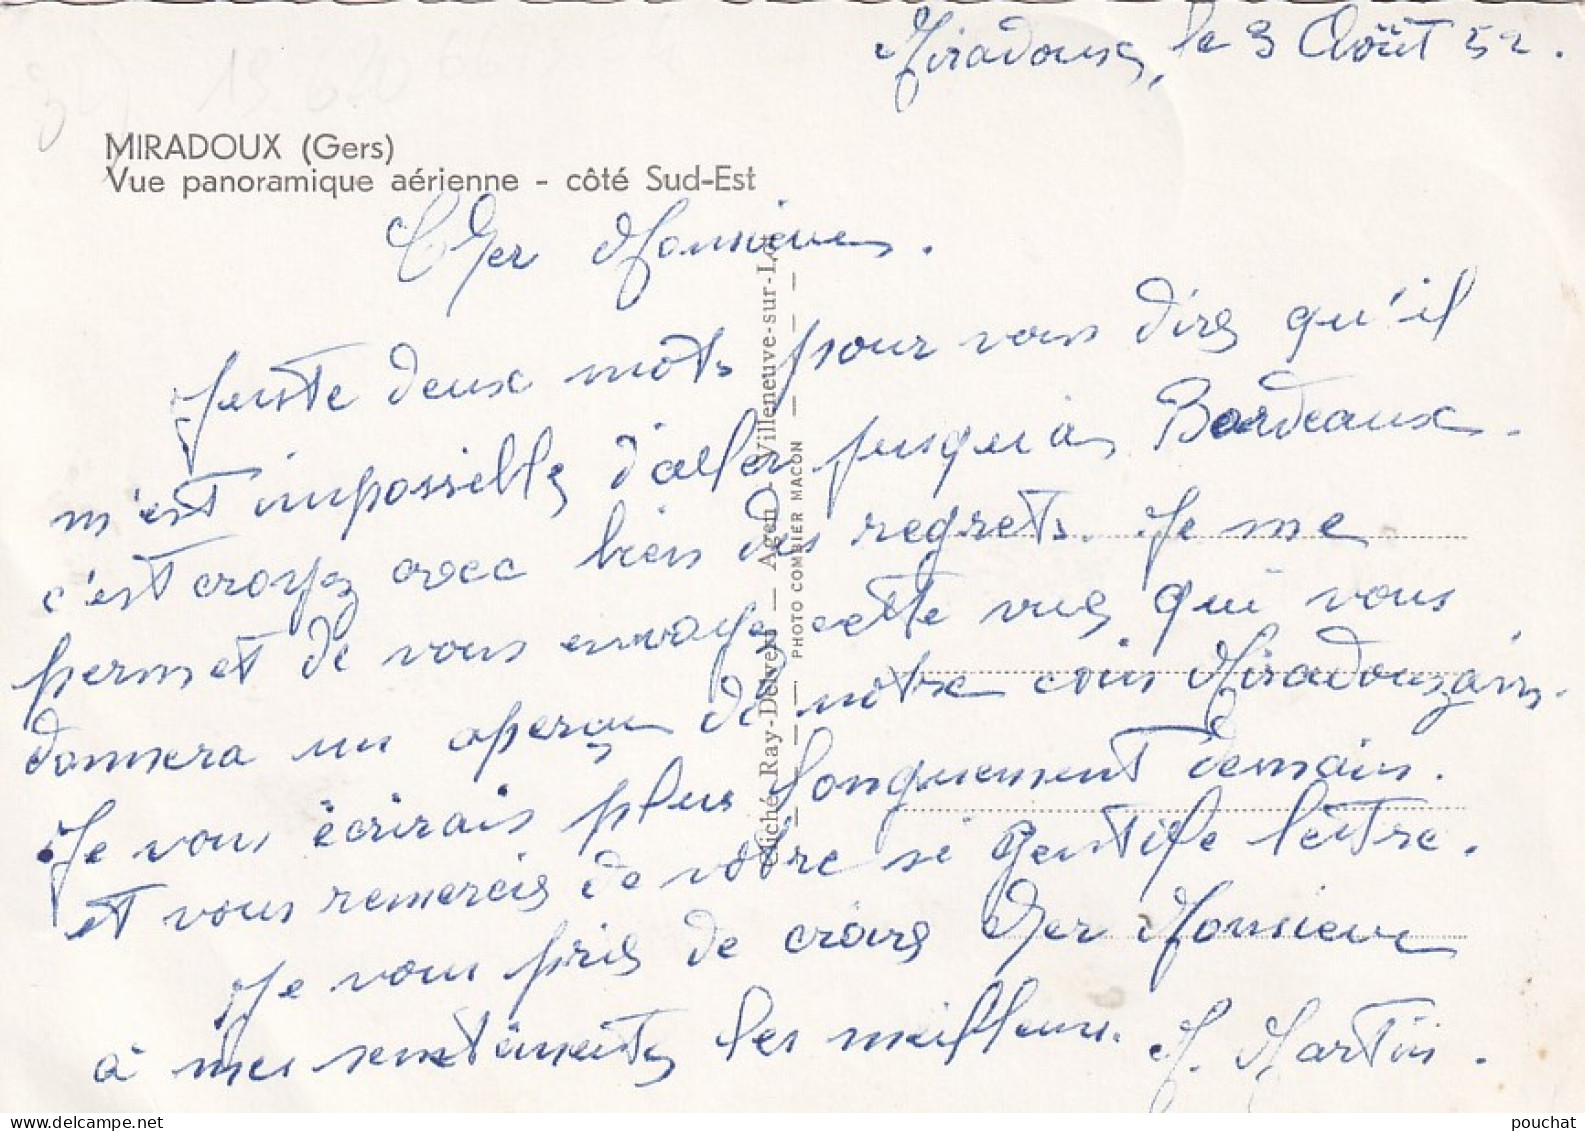 Miradoux, le 3 Août 52.
MIRADOUX (Gers)
Vue panoramique aérienne - côté Sud-Est
Cher Monsieur.
Juste deux mots pour vous dire qu'il
m'est impossible d'aller jusqu'à Bordeaux.
c'est croyez avec bien des regrets. Je me
permet de vous envoyer cette vue qui vous
donnera un aperçu de notre coin Miradouzain.
Je vous écrirais plus longuement demain.
et vous remercie de votre si gentille lettre.
Je vous prie de croire Cher Monsieur
à mes sentiments les meilleurs. M. Martin.
Cliché Ray-Delvert — Agen - Villeneuve-sur-Lot
PHOTO COMBIER MACON
www.delcampe.net
pouchat